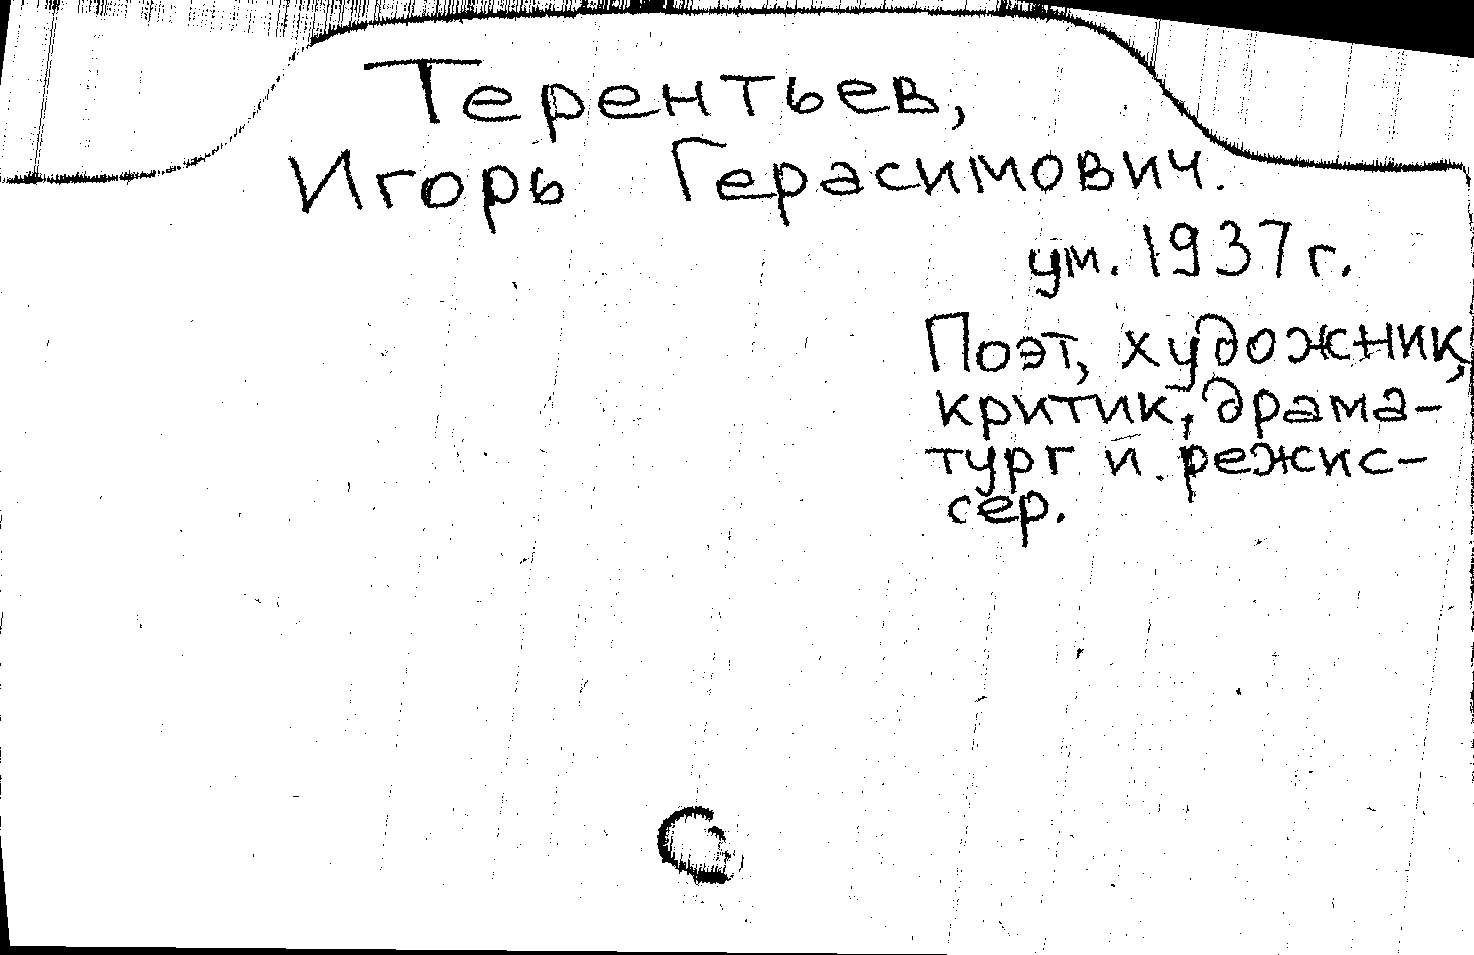 Терентьев,
Игорь Герасимович.
ум. 1937 г.
Поэт, художник,
критик, драма-
тург и режис-
сер.